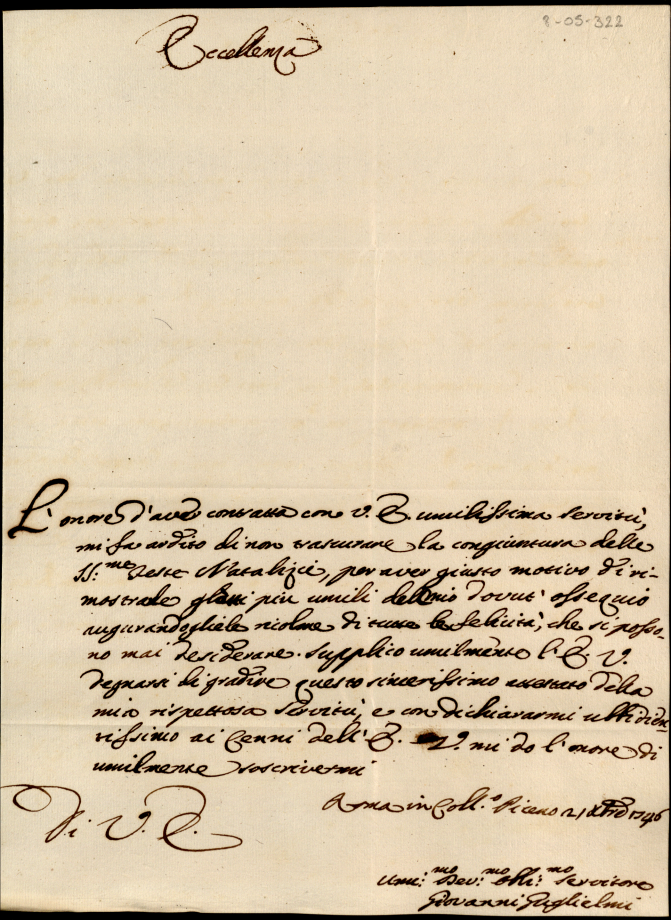 8-05-322
Eccellenza
L'onore d'aver contratta con V. E. umilissima servitù,
mi fa ardito di non trascurare la congiuntura delle
SS:me Feste Natalizie, per aver giusto motivo di ri-
mostrale gl'atti più umili del mio dovut' ossequio
augurandogliele ricolme di tutte le felicità, che si posso-
no mai desiderare. Supplico umilmente l'E. V.
degnarsi di gradire questo sincerissimo attestato della
mia rispettosa servitù, e con dichiararmi ubbidien-
tissimo ai Cenni dell'E. V. mi do l'onore di
umilmente soscrivermi
Di V. E.
Roma in Coll:o Piceno 21 Xbre 1746
Umi:mo Dev:mo Obli:mo Servitore
Giovanni Guglielmi